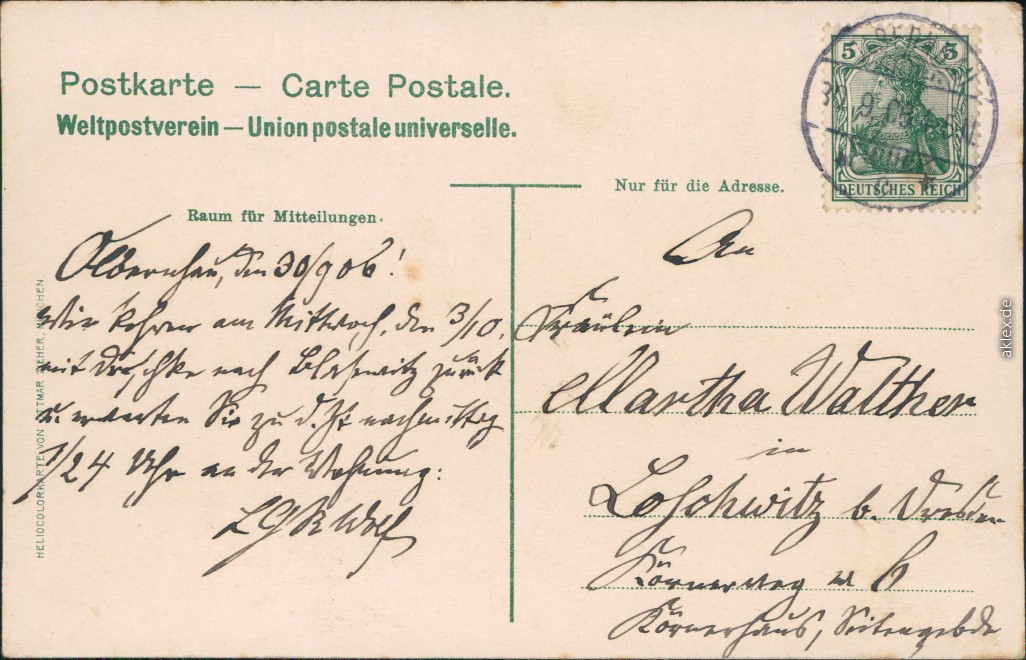 Postkarte — Carte Postale.
Weltpostverein — Union postale universelle.
Nur für die Adresse.
Raum für Mitteilungen.
5 5
DEUTSCHES REICH
Olbernhau, den 30/9 06!
Wir kehren am Mittwoch, den 3/10,
mit Droschke nach Blasewitz zurück
u. erwarten Sie zu d. Zt. nachmittag
1/2 4 Uhr an der Wohnung:
Wolf
An
Fräulein
Martha Walther
in
Loschwitz b. Dresden
Körnerweg 6
Körnerhaus, Seitengebde
HELIOCOLORKARTE VON OTTMAR ZIEHER, MÜNCHEN
aklex.de